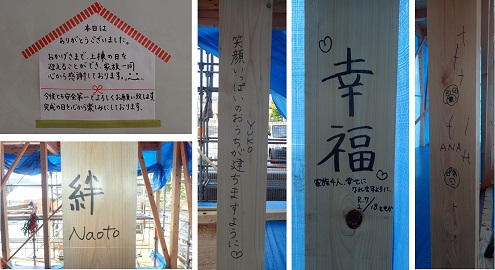 本日は
ありがとうございました。
おかげさまで、上棟の日を
迎えることができ、家族一同
心から感謝しております。
今後とも安全第一でよろしくお願い致します
完成の日を心から楽しみにしております。
絆
Naoto
笑顔いっぱいのおうちが建ちますように♡
YUKO
幸福
家族4人、幸せに
なれますように。
ANA